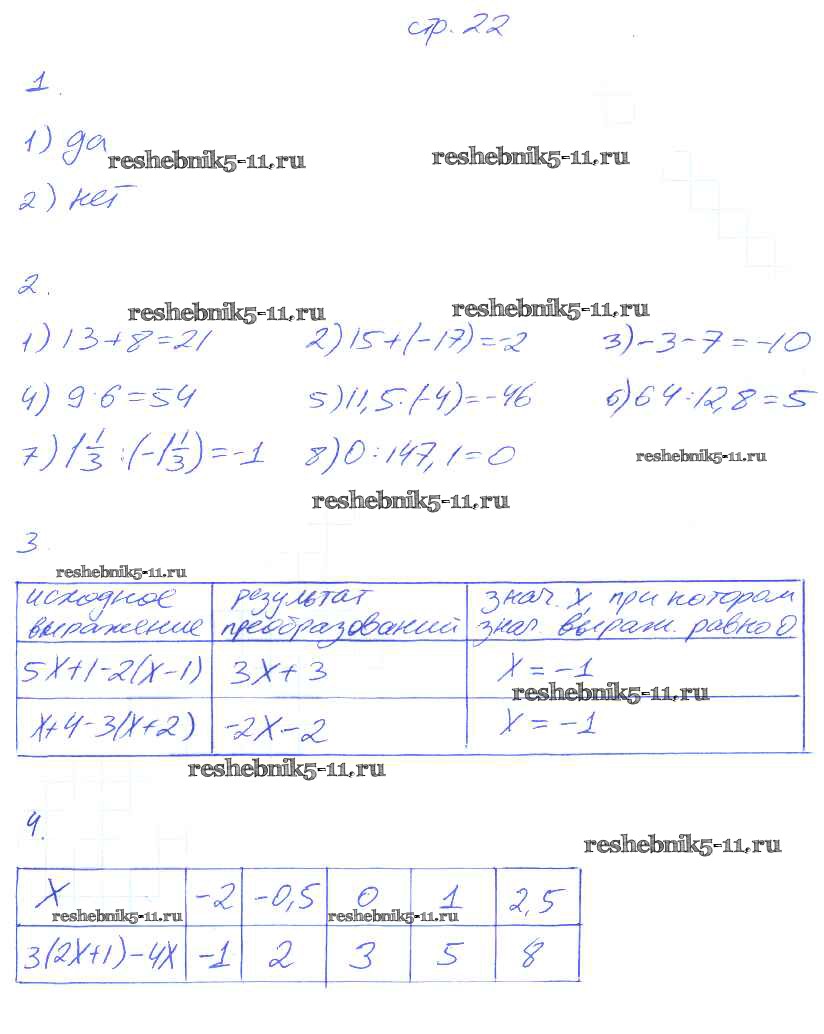 стр. 22
1.
1) да
reshebnik5-11.ru reshebnik5-11.ru
2) нет
2.
reshebnik5-11.ru reshebnik5-11.ru
1) 13+8=21 2) 15+(-17)=-2 3) -3-7=-10
4) 9·6=54 5) 11,5·(-4)=-46 6) 64:12,8=5
7) 1 1/3 : (-1 1/3) = -1 8) 0:147,1=0 reshebnik5-11.ru
reshebnik5-11.ru
3.
reshebnik5-11.ru
исходное результат знач. x, при котором
выражение преобразований знач. выраж. равно 0
5x+1-2(x-1) 3x+3 x = -1
reshebnik5-11.ru
x+4-3(x+2) -2x-2 x = -1
reshebnik5-11.ru
4.
reshebnik5-11.ru
x -2 -0,5 0 1 2,5
reshebnik5-11.ru reshebnik5-11.ru
3(2x+1)-4x -1 2 3 5 8